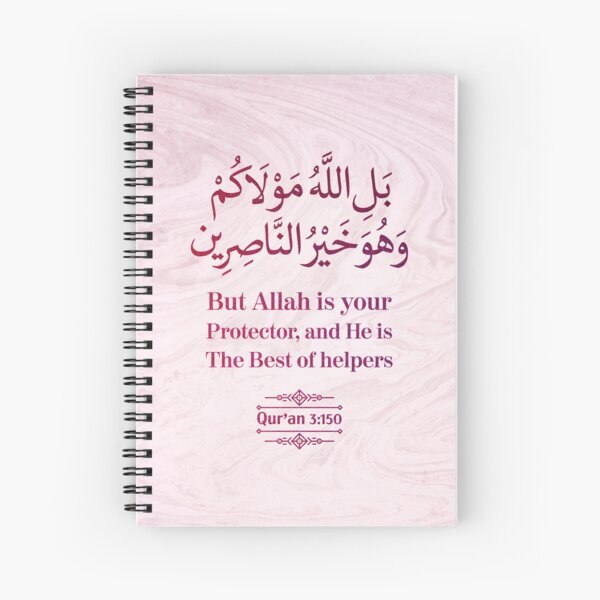 بَلِ اللَّهُ مَوْلَاكُمْ
وَهُوَ خَيْرُ النَّاصِرِين
But Allah is your
Protector, and He is
The Best of helpers
Qur'an 3:150